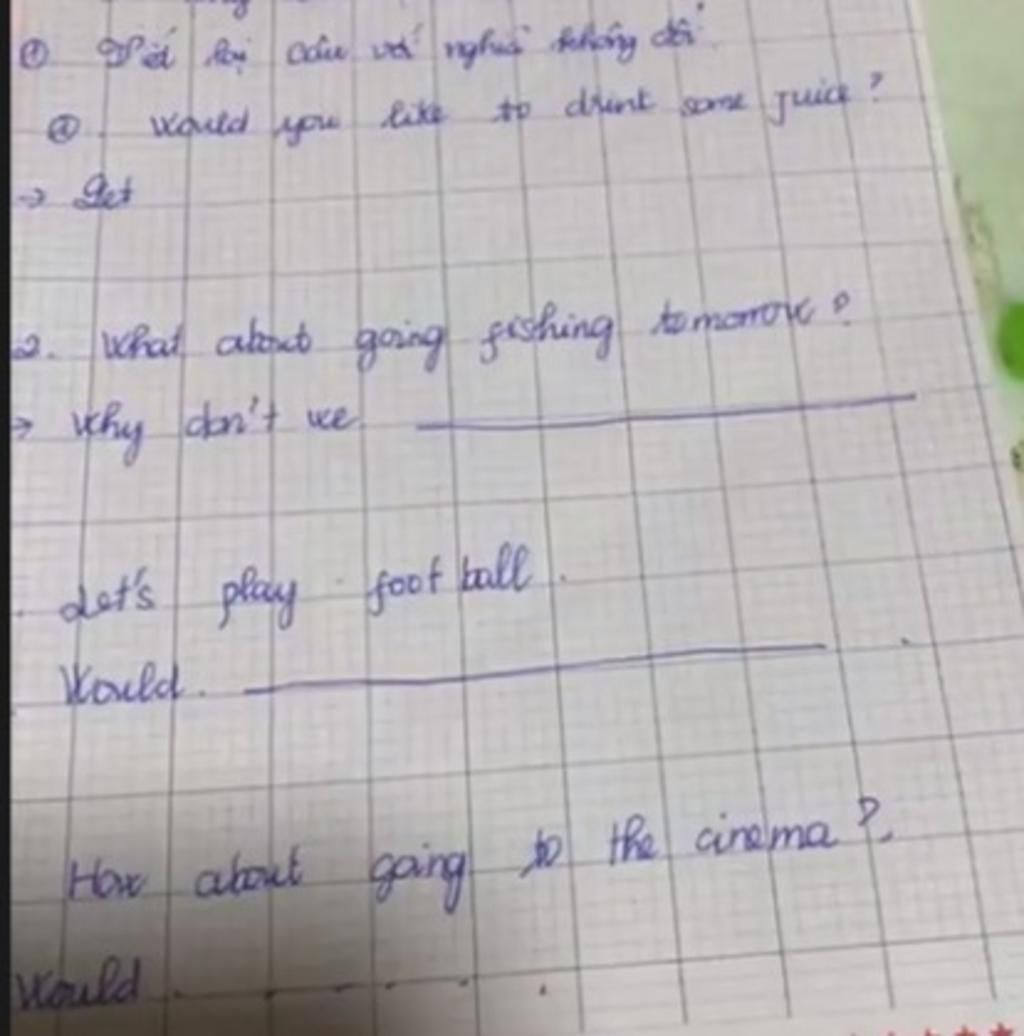 ① Viết lại câu với nghĩa không đổi
①. Would you like to drink some juice?
→ Let
2. What about going fishing tomorrow?
→ Why don't we
Let's play football.
Would.
How about going to the cinema?
Would . . . . . .